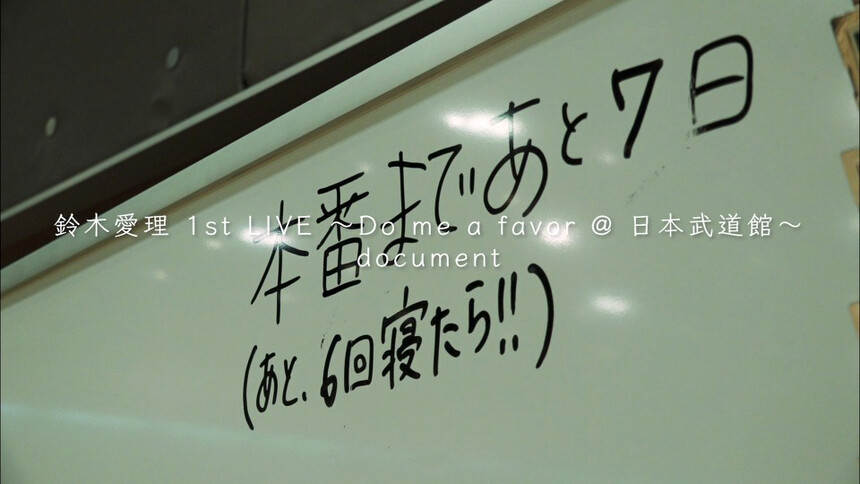 本番まであと7日
鈴木愛理 1st LIVE ～Do me a favor @ 日本武道館～
document
(あと、6回寝たら!!)